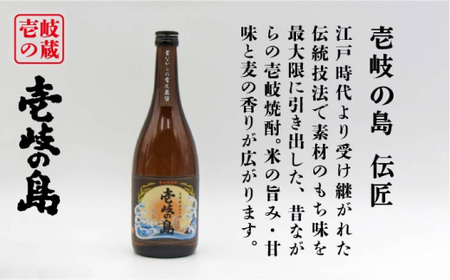 壱岐の島 伝匠
江戸時代より受け継がれた
伝統技法で素材のもち味を
最大限に引き出した、昔なが
らの壱岐焼酎。米の旨み・甘
味と麦の香りが広がります。
壱岐
の蔵
壱岐の島
壱岐の島